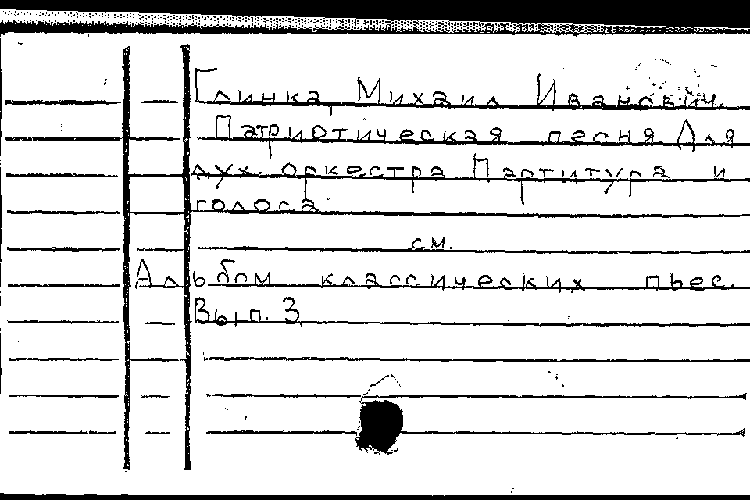 Глинка, Михаил Иванович.
Патриотическая песня Для
дух. оркестра Партитура и
голоса.
см.
Альбом классических пьес.
Вып. 3